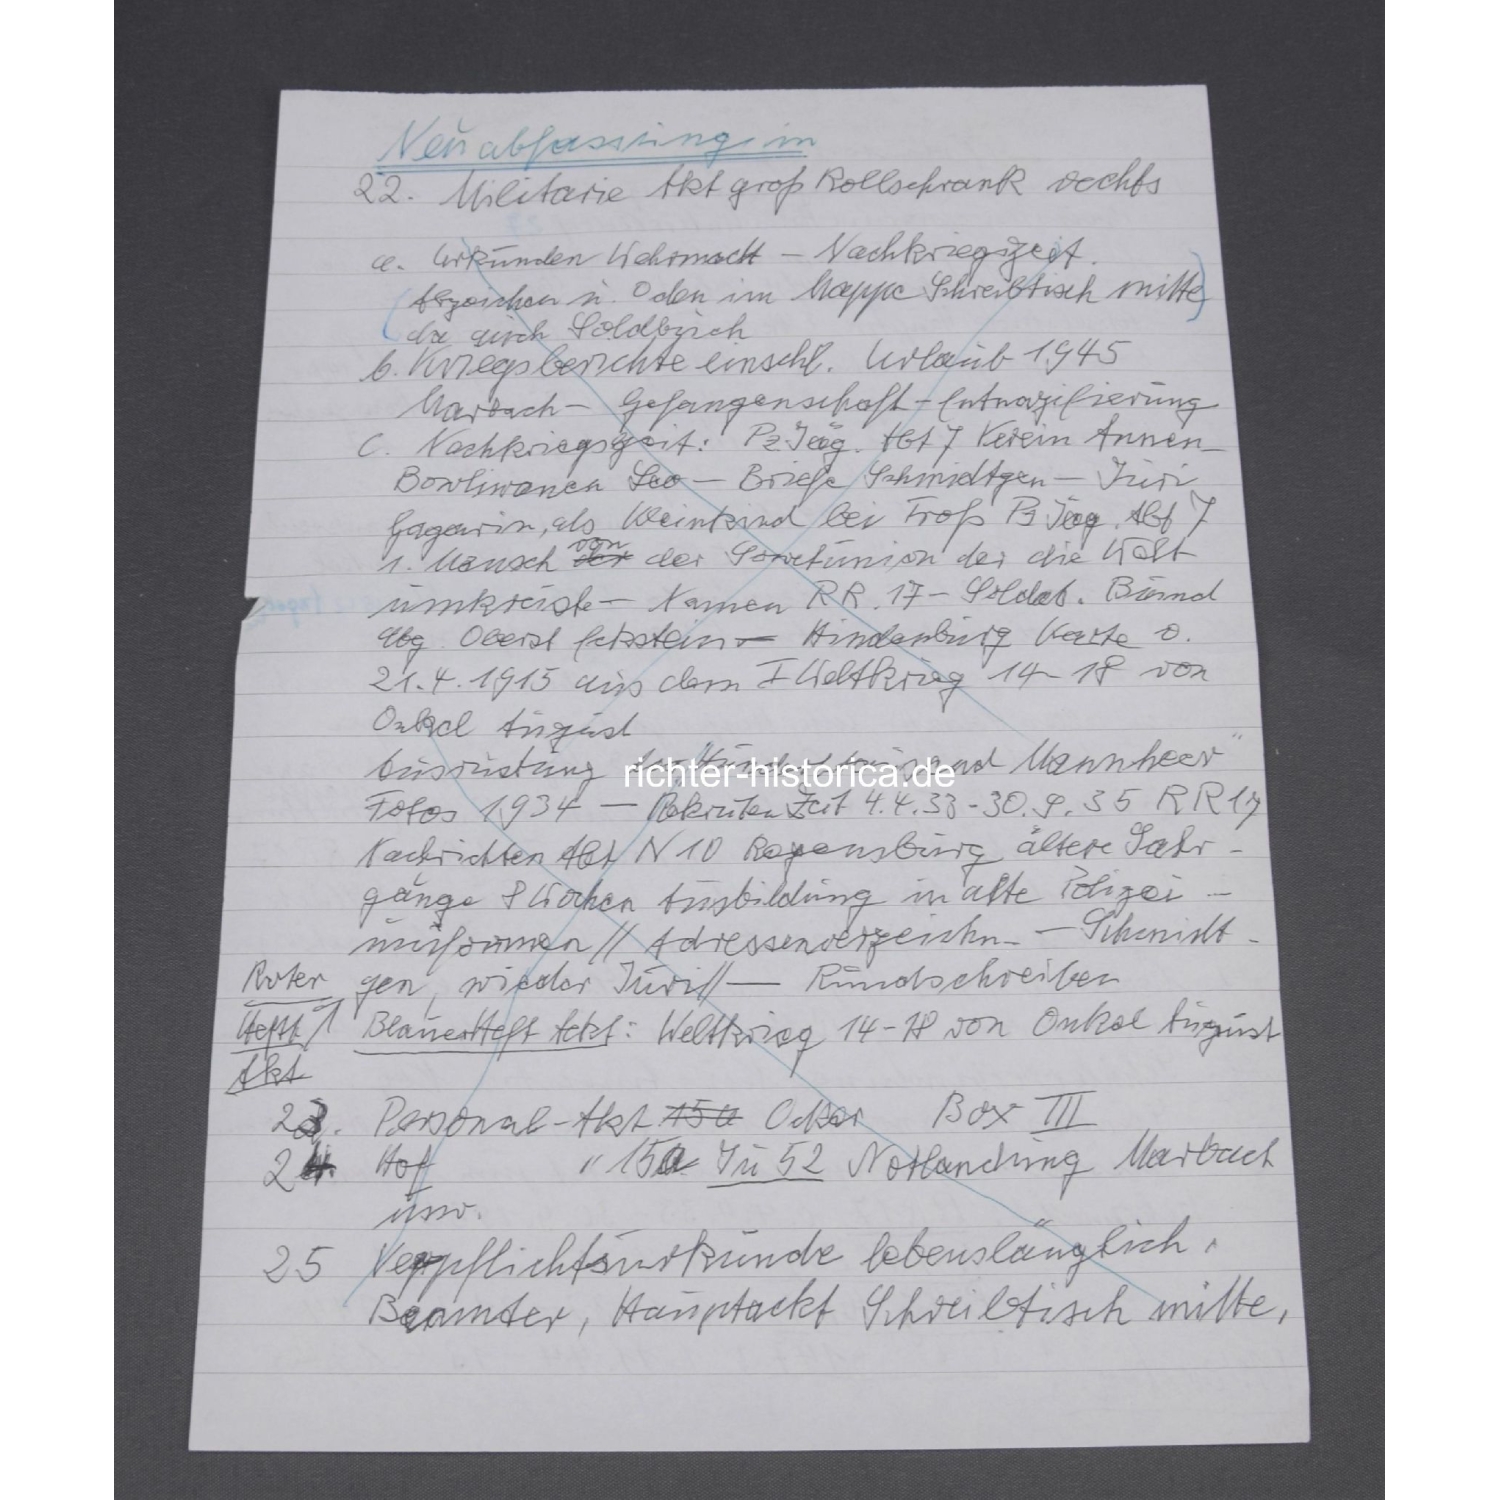 Neuabfassung in
22. Militarie Akt groß Rollschrank rechts
a. Urkunden Wehrmacht – Nachkriegszeit.
(Abzeichen u. Oden im Mappe Schreibtisch mitte)
da auch Soldbuch
b. Kriegsberichte einschl. Urlaub 1945
Marbach – Gefangenschaft – Entnazifizierung
C. Nachkriegszeit: Pz Jäg. Abt 7 Verein Annen-
Leo – Briefe Schmidtgen – Juri
Gagarin, als Kleinkind bei Troß Pz Jäg. Abt 7
1. Mensch der von der Sowetunion der die Welt
umkreiste – Namen RR. 17 – Soldat. Bund
Abg. Oberst – Hindenburg Karte v.
21.4.1915 aus dem I Weltkrieg 14–18 von
Onkel August
Ausrüstung Mannheer"
richter-historica.de
Fotos 1934 — Rekruten Zeit 4.4.33-30.9.35 RR17
Nachrichten Abt N 10 Regensburg ältere Jahr-
gänge 8 Wochen Ausbildung in alte Polizei –
uniformen // Adressenverzeichn. – Schmidt-
Roter gen, wieder Juri // — Rundschreiben
Heft 1 Blauer Heft Akt: Weltkrieg 14–18 von Onkel August
Akt
23. Personal-Akt 15a Ocker Box III
24. Hof " 15a Ju 52 Notlandung Marbach
usw.
25 Verpflichtsurkunde lebenslänglich.
Beamter, Hauptackt Schreibtisch mitte,